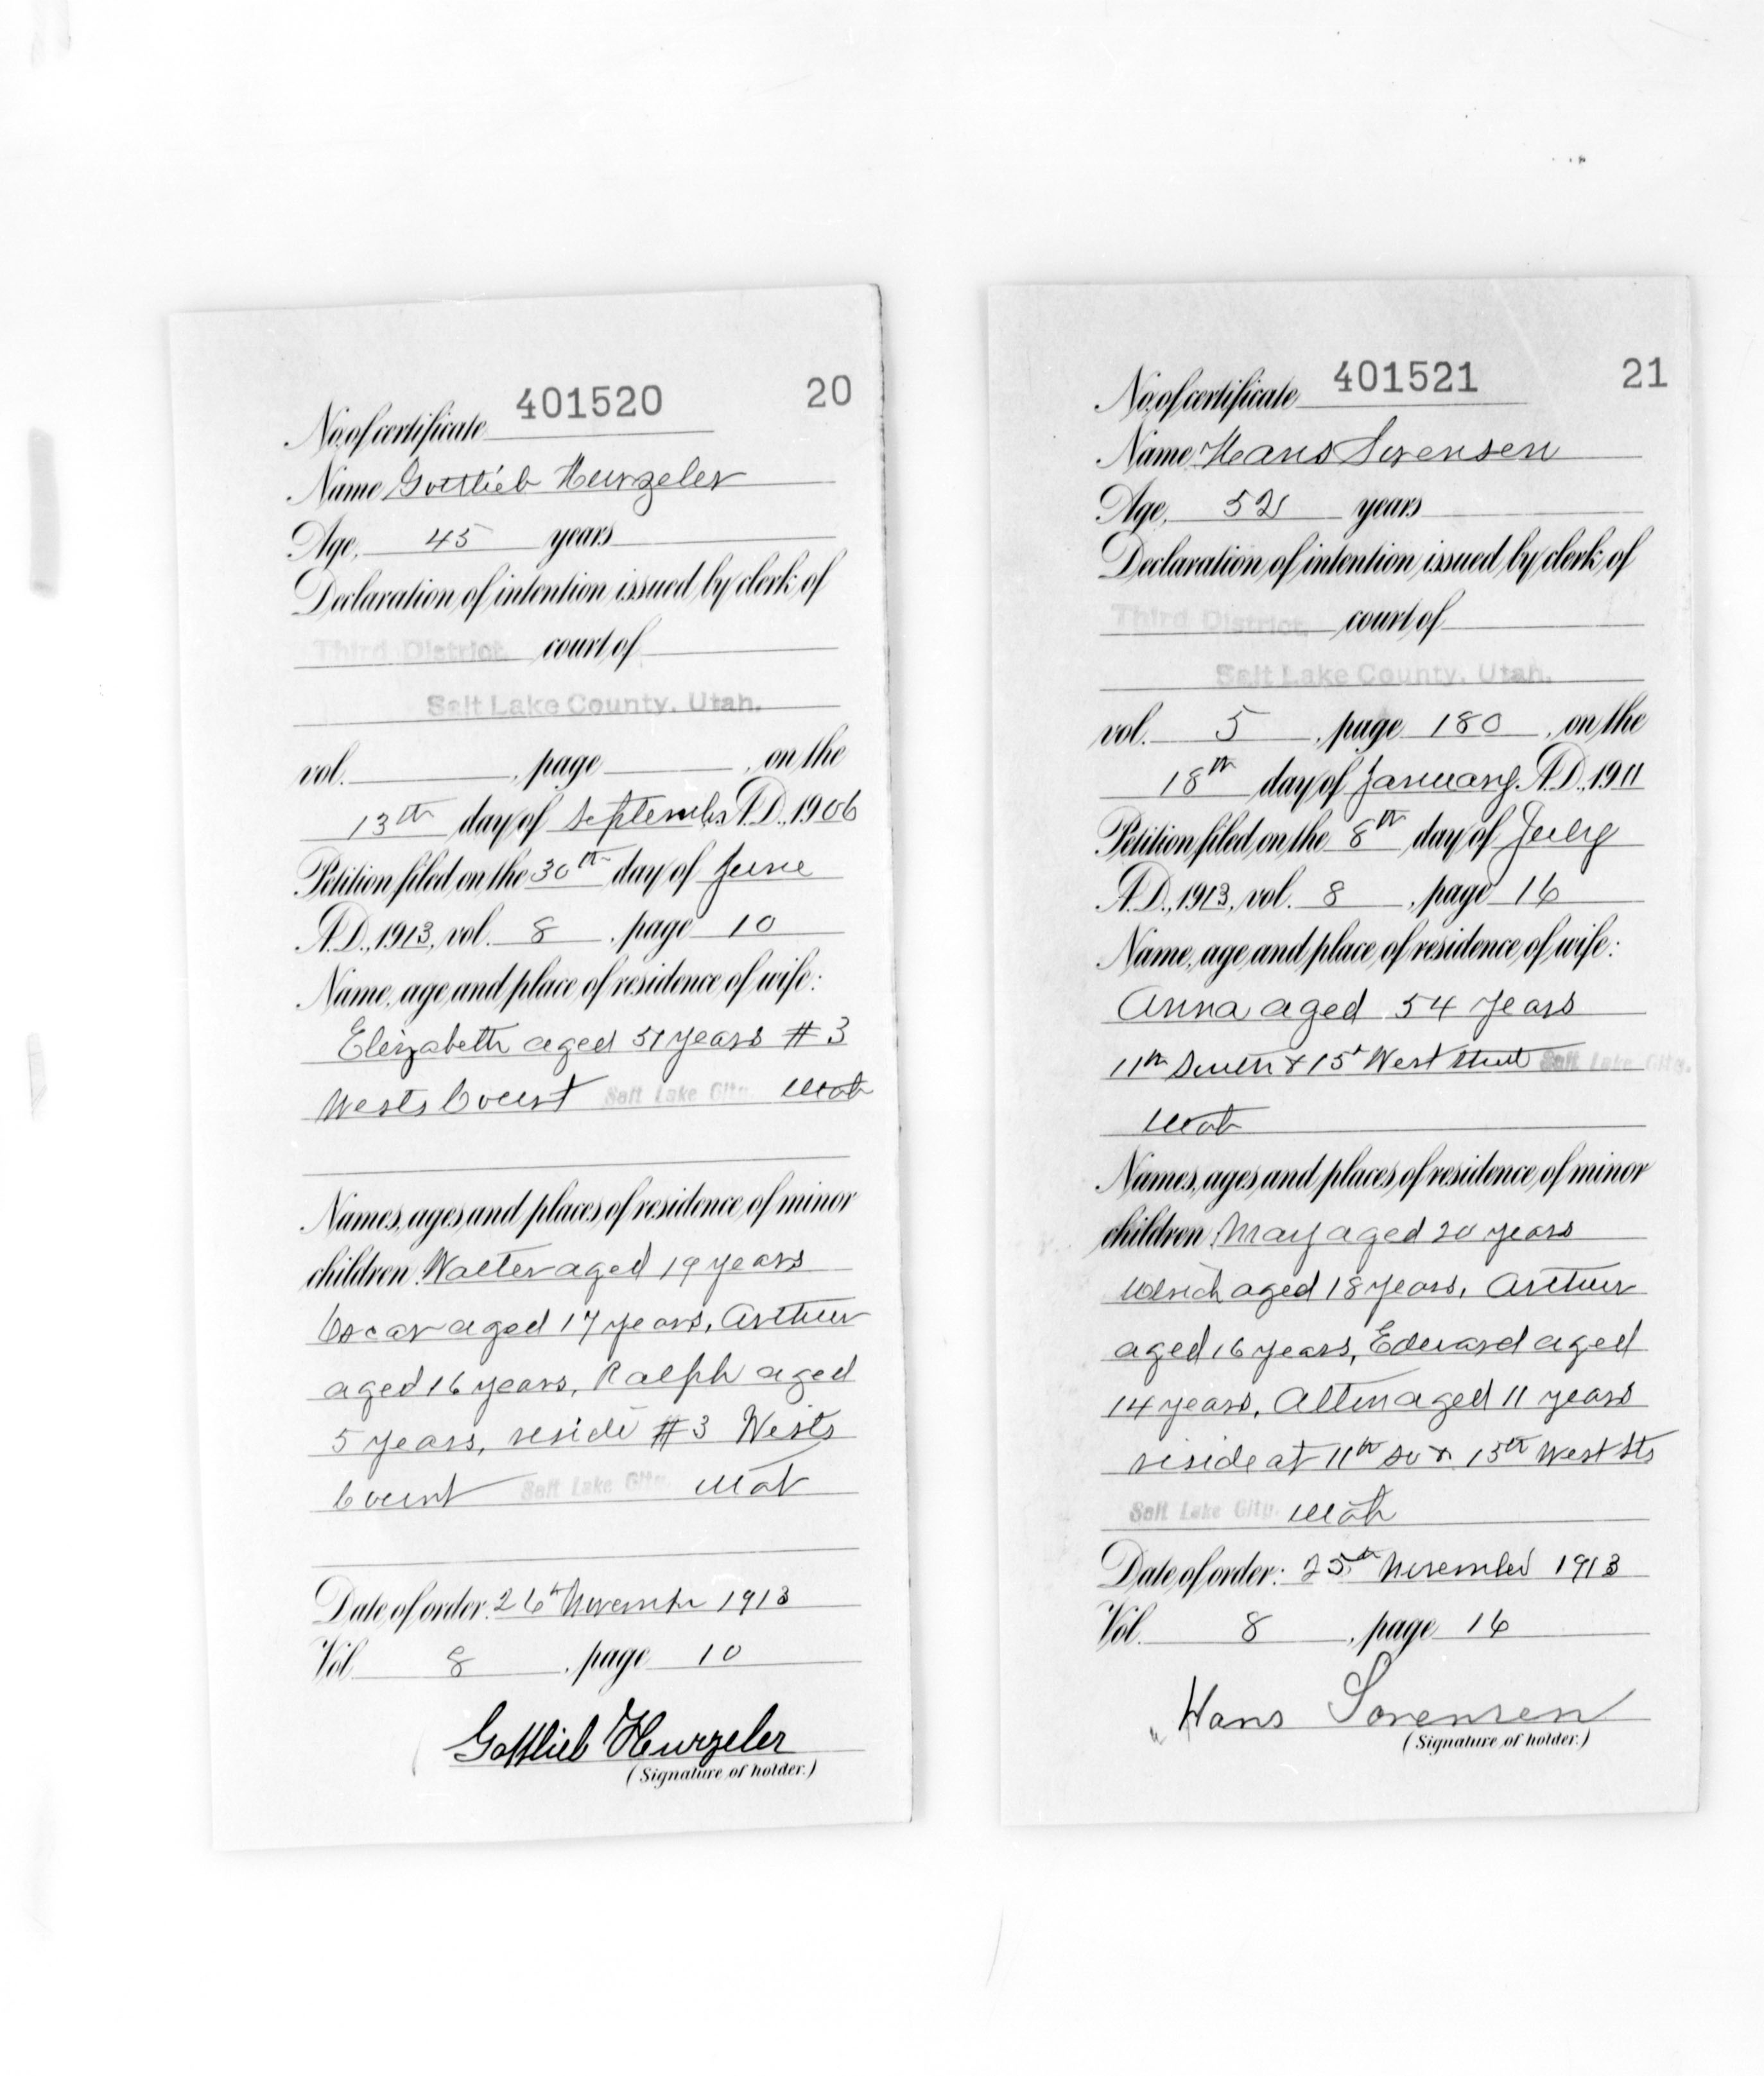 401520 20
No. of certificate
Name Gottlieb Hurzeler
Age, 45 years
Declaration of intention issued by clerk of
Third District, court of
Salt Lake County, Utah.
vol. , page , on the
13th day of September A.D., 1906
Petition filed on the 30th day of June
A.D., 1913, vol. 8 , page 10
Name, age and place of residence of wife:
Elizabeth aged 51 years #3
Wests Court Salt Lake City, Utah
Names, ages and places of residence of minor
children Walter aged 19 years
Oscar aged 17 years, Arthur
aged 16 years, Ralph aged
5 years, reside #3 Wests
Court Salt Lake City, Utah
Date of order: 26th November 1913
Vol. 8 , page 10
Gottlieb Hurzeler
(Signature of holder.)
401521 21
No. of certificate
Name Hans Sorensen
Age, 52 years
Declaration of intention issued by clerk of
Third District, court of
Salt Lake County, Utah.
vol. 5 , page 180 , on the
18th day of January A.D., 1911
Petition filed on the 8th day of July
A.D., 1913, vol. 8 , page 16
Name, age and place of residence of wife:
Anna aged 54 years
11th South & 15th West Street Salt Lake City,
Utah
Names, ages and places of residence of minor
children May aged 20 years
aged 18 years, Arthur
aged 16 years, Edward aged
14 years, aged 11 years
reside at 11th So & 15th West Sts
Salt Lake City, Utah
Date of order: 25th November 1913
Vol. 8 , page 16
Hans Sorensen
(Signature of holder.)